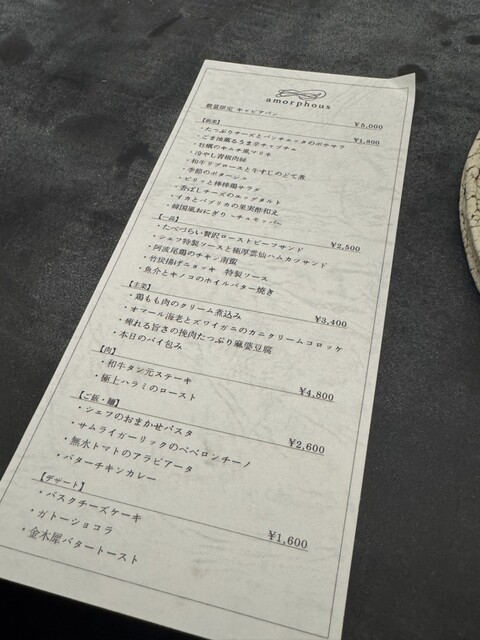 amorphous
数量限定 キャビアパン ¥5,000
【前菜】 ¥1,800
・たっぷりチーズとパンチェッタのポテサラ
・ごま油薫るうま辛チャプチェ
・牡蠣のキムチ風マリネ
・冷やし青椒肉絲
・和牛リブロースと牛すじのどて煮
・季節のポタージュ
・ピリッと棒棒鶏サラダ
・香ばしチーズのエッグタルト
・イカとパプリカの果実酢和え
・韓国風おにぎり 〜チュモッパ〜
【一品】 ¥2,500
・たべづらい贅沢ローストビーフサンド
・シェフ特製ソースと極厚雲仙ハムカツサンド
・阿波尾鶏のチキン南蛮
・竹炭揚げニョッキ 特製ソース
・魚介とキノコのホイルバター焼き
【主菜】 ¥3,400
・鶏もも肉のクリーム煮込み
・オマール海老とズワイガニのカニクリームコロッケ
・痺れる旨さの挽肉たっぷり麻婆豆腐
・本日のパイ包み
【肉】 ¥4,800
・和牛タン元ステーキ
・極上ハラミのロースト
【ご飯・麺】 ¥2,600
・シェフのおまかせパスタ
・サムライガーリックのペペロンチーノ
・無水トマトのアラビアータ
・バターチキンカレー
【デザート】 ¥1,600
・バスクチーズケーキ
・ガトーショコラ
・金木犀バタートースト